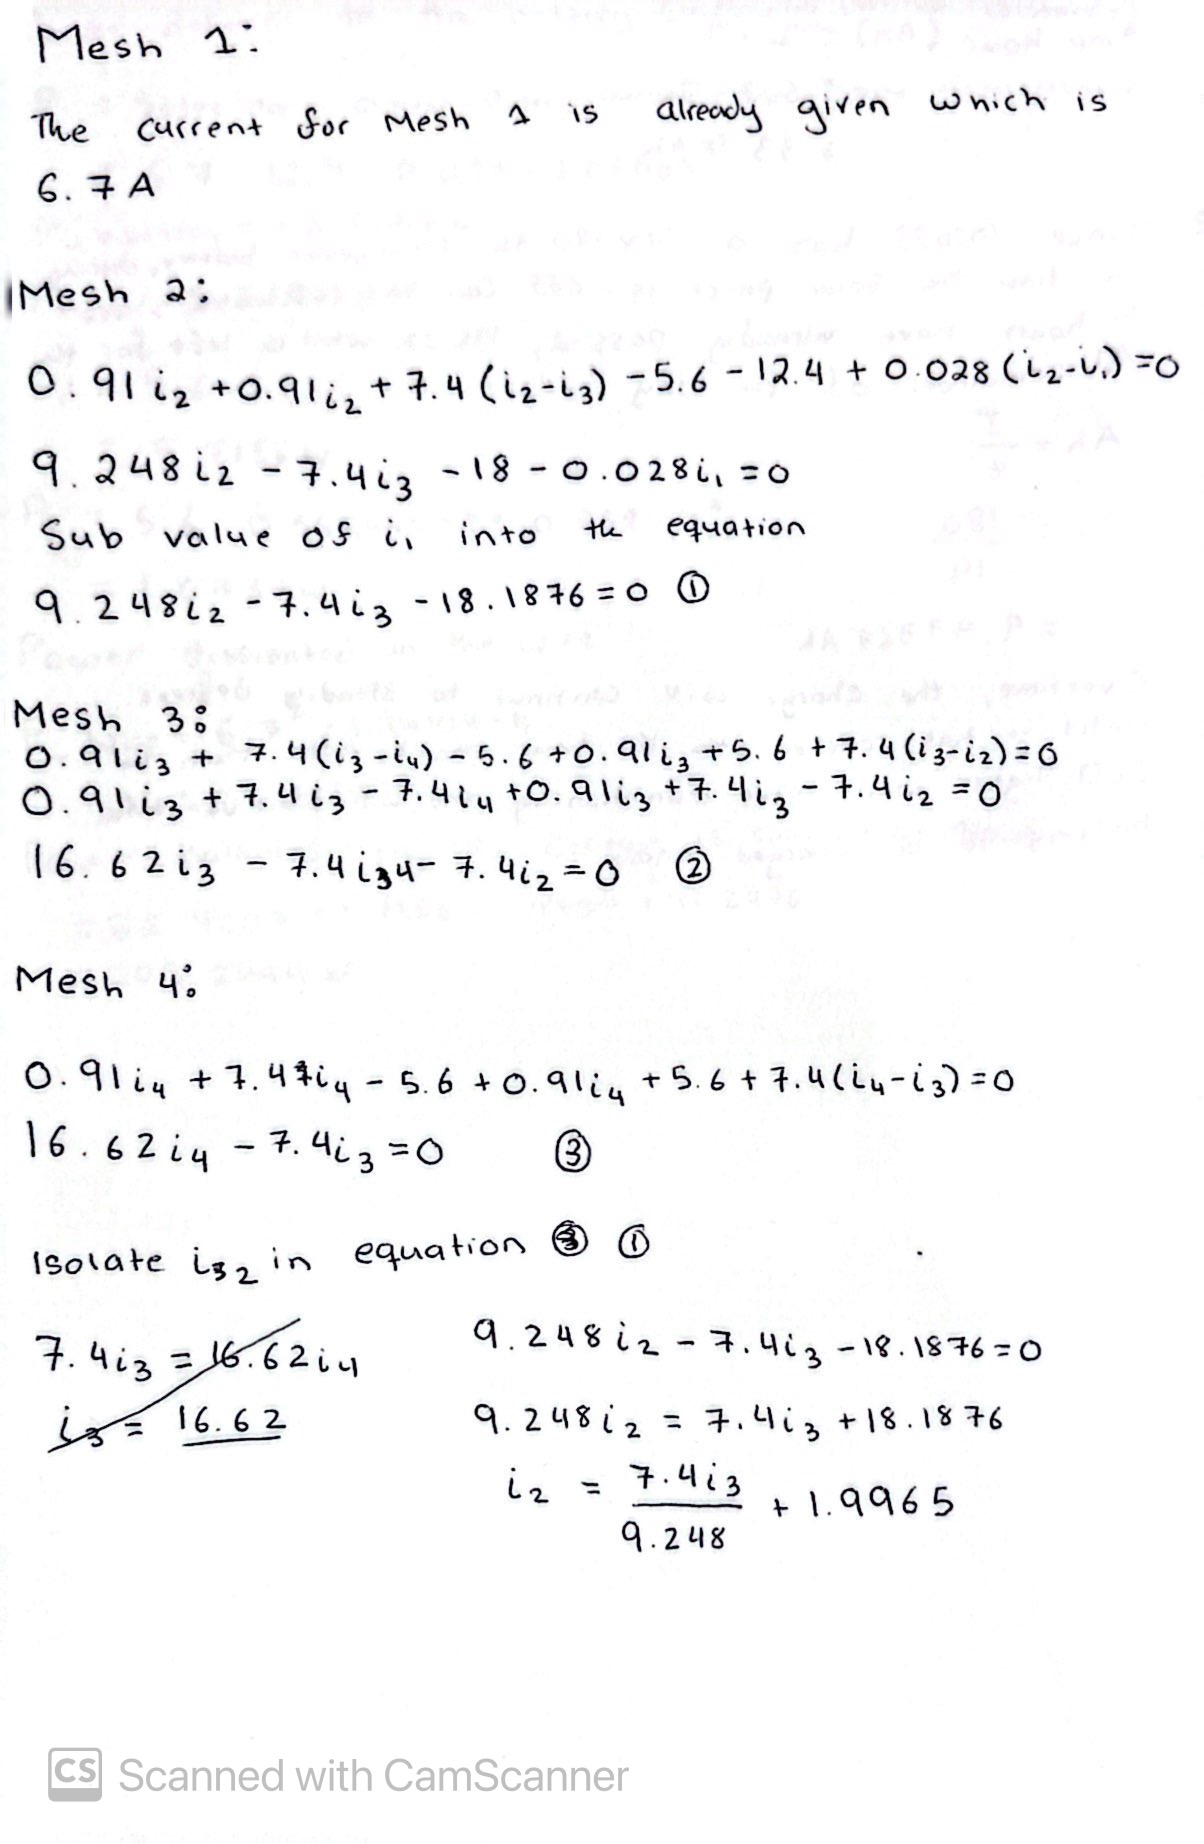 Mesh 1:
The current for Mesh 1 is already given which is
6.7 A
Mesh 2:
0.91 i₂ + 0.91 i₂ + 7.4 (i₂-i₃) - 5.6 - 12.4 + 0.028 (i₂-i₁) = 0
9.248 i₂ - 7.4 i₃ - 18 - 0.028 i₁ = 0
Sub value of i₁ into the equation
9.248 i₂ - 7.4 i₃ - 18.1876 = 0 ①
Mesh 3:
0.91 i₃ + 7.4 (i₃-i₄) - 5.6 + 0.91 i₃ + 5.6 + 7.4 (i₃-i₂) = 0
0.91 i₃ + 7.4 i₃ - 7.4 i₄ + 0.91 i₃ + 7.4 i₃ - 7.4 i₂ = 0
16.62 i₃ - 7.4 i₄ - 7.4 i₂ = 0 ②
Mesh 4:
0.91 i₄ + 7.4 i₄ - 5.6 + 0.91 i₄ + 5.6 + 7.4 (i₄-i₃) = 0
16.62 i₄ - 7.4 i₃ = 0 ③
Isolate i₂ in equation ①
7.4 i₃ = 16.62 i₄
i₃ = 16.62
9.248 i₂ - 7.4 i₃ - 18.1876 = 0
9.248 i₂ = 7.4 i₃ + 18.1876
i₂ = 7.4 i₃ + 1.9965
9.248
CS Scanned with CamScanner